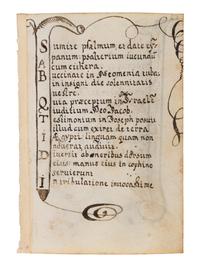 Sumite psalmum et date tÿm
panum psalterium iucundũ
cum cithera.
Buccinate in Neomenia tuba,
in insigni die solennitatis
vestre.
Quia præceptum in Israel
iuditium Deo Jacob.
Testimonium in Joseph posuit
illud cum exiret de terra
Ægypti linguam quam non
noverat audivit.
Divertit ab oneribus dorsum
eius manus eius in cophino
servierunt
In tribulatione invocastime